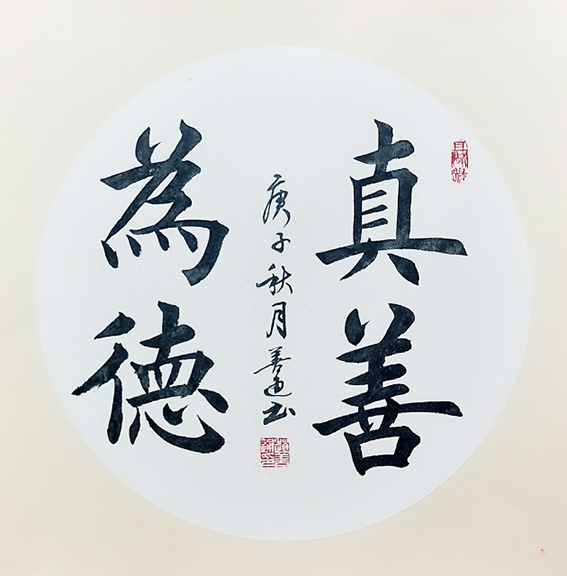 真善
為德
庚子秋月善道书